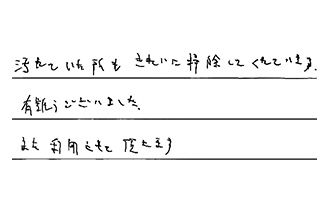 汚れていた所も きれいに掃除してくれています。
有難うございました。
また 利用させて 頂きます